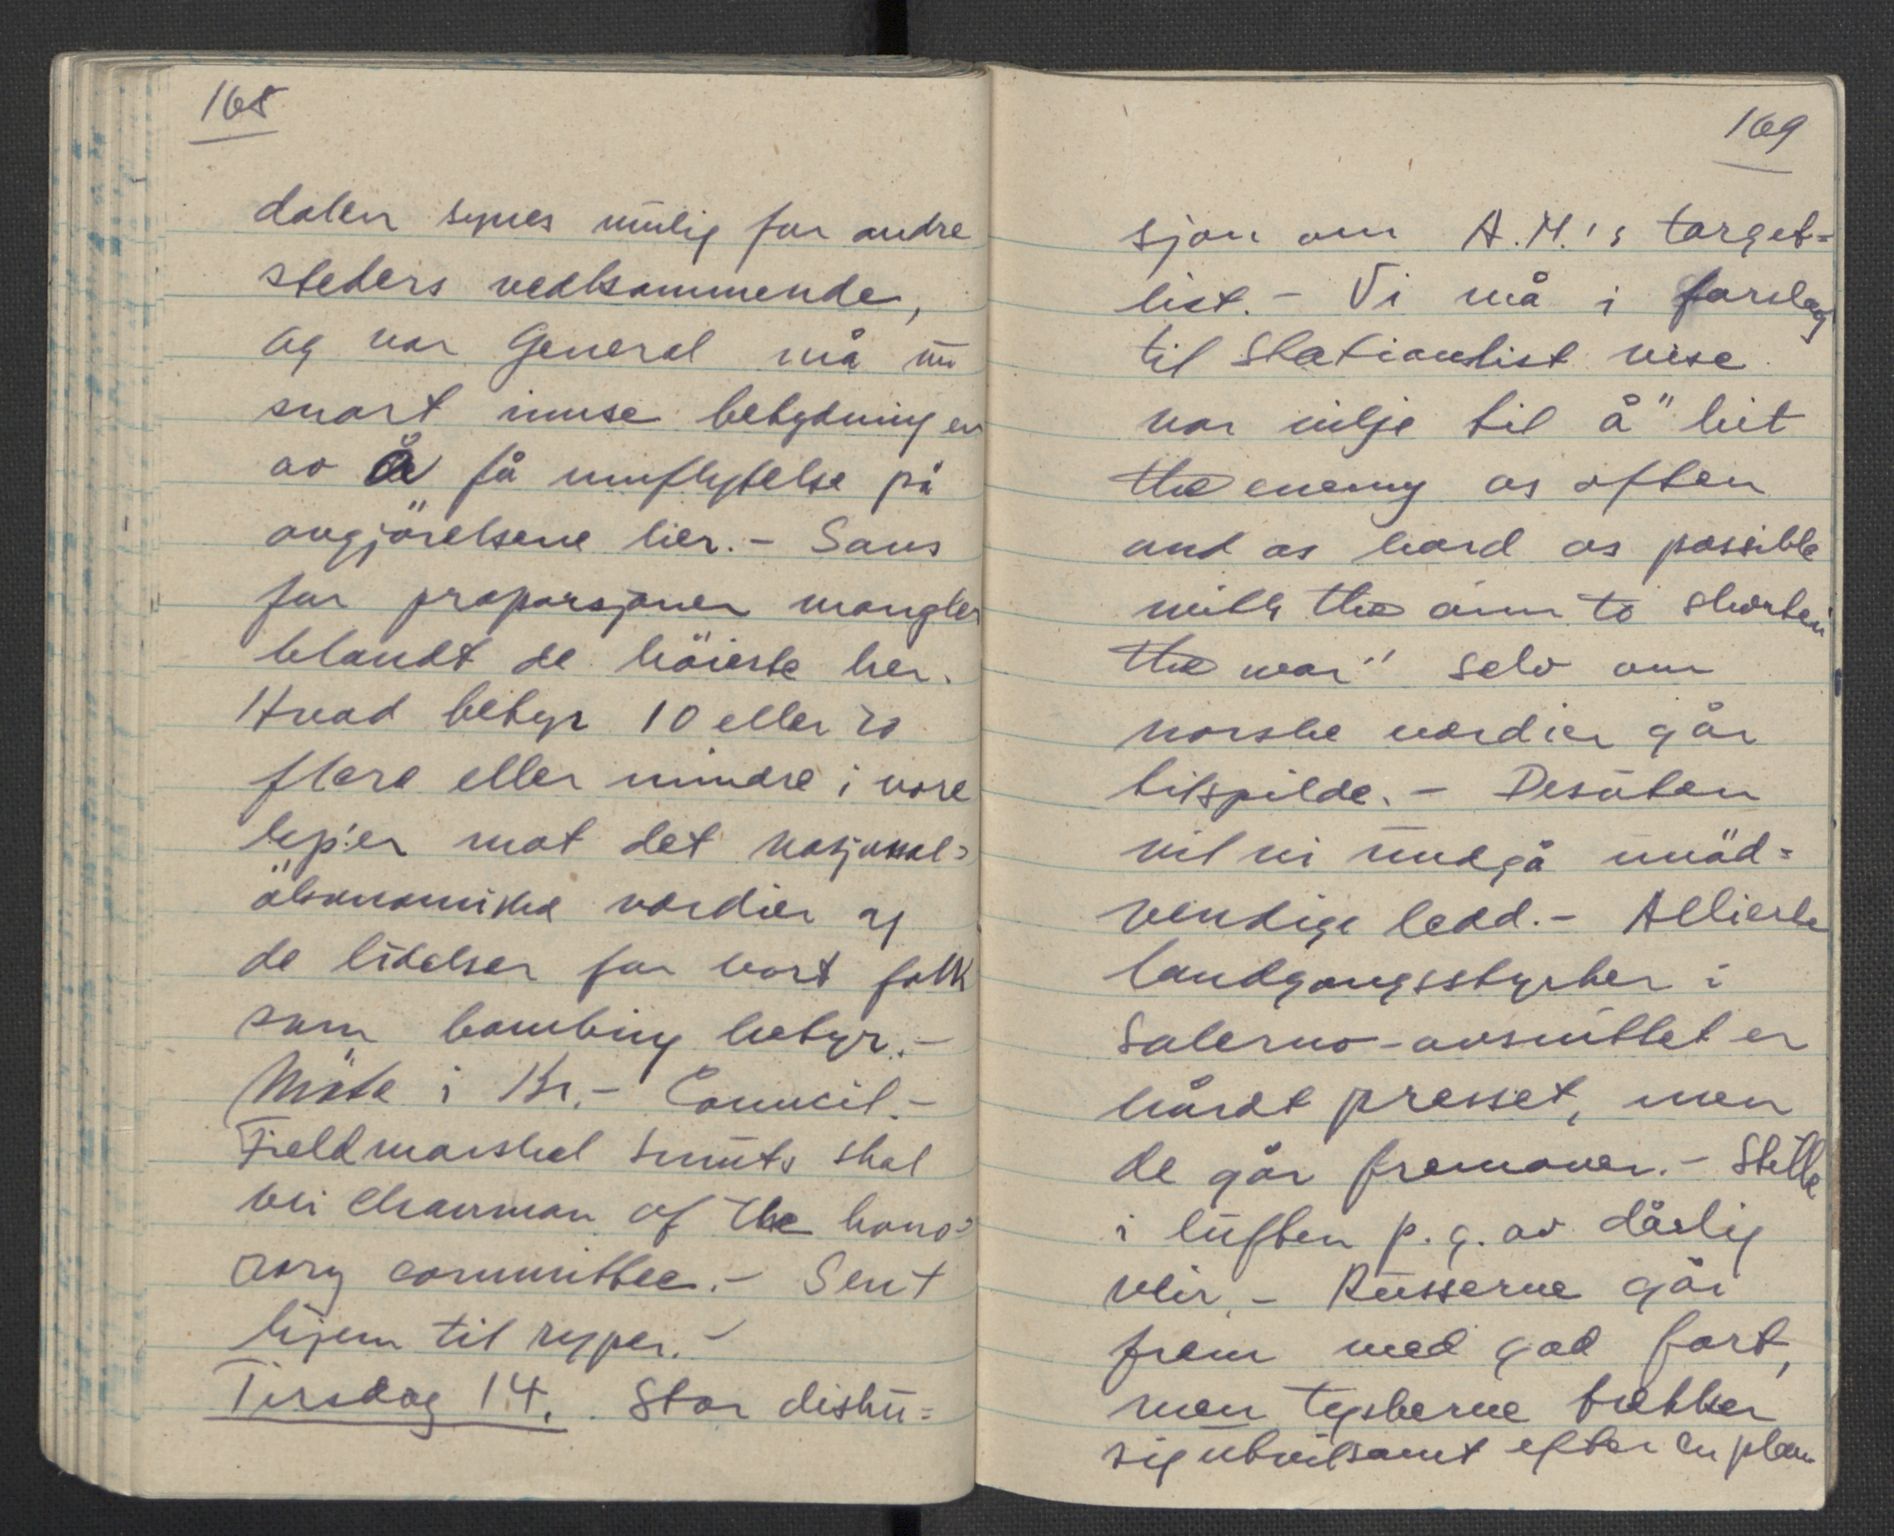 168
dalen synes mulig for andre
steders vedkommende,
og vor General må nu
snart innse betydningen
av å få innflytelse på
avgjörelsene her. - Sans
for proporsjoner mangler
blandt de höieste her.
Hvad betyr 10 eller 20
flere eller mindre i våre
kp.er mot det nasjonal=
ökonomiske verdier og
de lidelser for vort folk
som bombing betyr. -
Möte i Br. - Council. -
Fieldmarshal Smuts skal
bli chairman of the hono=
rary committee. - Sent
hjem til ryper. -
Tirsdag 14. Stor disku=
169
sjon om A.M.'s target=
list. - Vi må i forslag
til Stationlist vise
vor vilje til å "hit
the enemy as often
and as hard as possible
with the aim to shorten
the war" selv om
norske verdier går
tilspilde. - Desuten
vil vi undgå unöd=
vendige ledd. - Allierte
landgangsstyrker i
Salerno-avsnittet er
hårdt presset, men
de går fremover. - Stille
i luften p.g.av dårlig
veir. - Russerne går
frem med god fart,
men tyskerne trekker
sig utvilsomt efter en plan